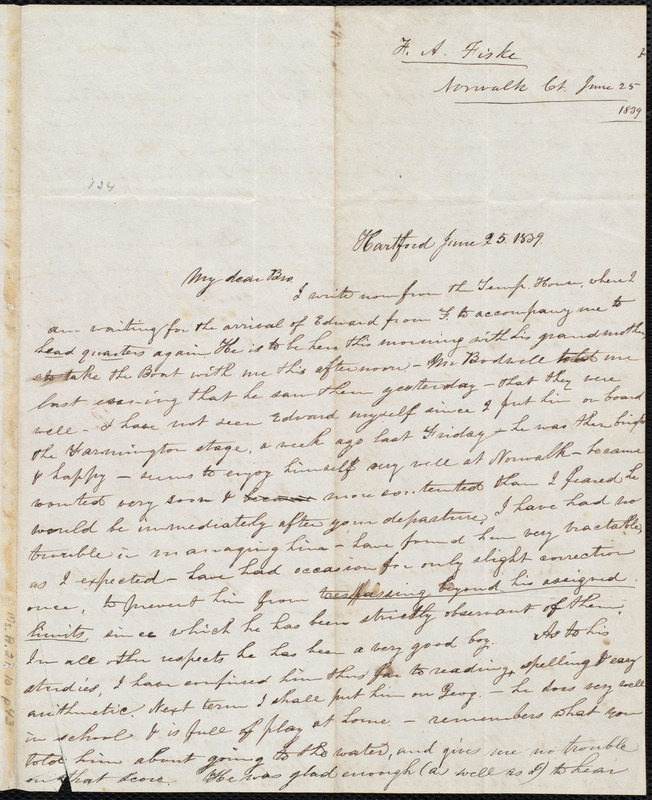 F. A. Fiske
Norwalk Ct. June 25
1839
124
Hartford June 25. 1839.
My dear Bro.
I write now from the Temp. House, where I
am waiting for the arrival of Edward from F. to accompany me to
head quarters again. He is to be here this morning with his grandmother,
to take the Boat with me this afternoon - Mr Bodwell told me
last evening that he saw them yesterday - that they were
well - I have not seen Edward myself since I put him on board
the Farmington stage, a week ago last Friday - he was then bright
& happy - seems to enjoy himself very well at Norwalk - became
wonted very soon & became more contented than I feared he
would be immediately after your departure. I have had no
trouble in managing him - have found him very tractable,
as I expected - have had occasion for only slight correction
once, to prevent him from trespassing beyond his assigned
limits, since which he has been strictly observant of them.
In all other respects he has been a very good boy. As to his
studies, I have confined him thus far to reading, spelling & easy
arithmetic. Next term I shall put him on Geog. - he does very well
in school & is full of play at home - remembers what you
told him about going to the water, and gives me no trouble
on that score. He was glad enough (as well as I) to hear
Ms. A. 2.1. 10 p 43